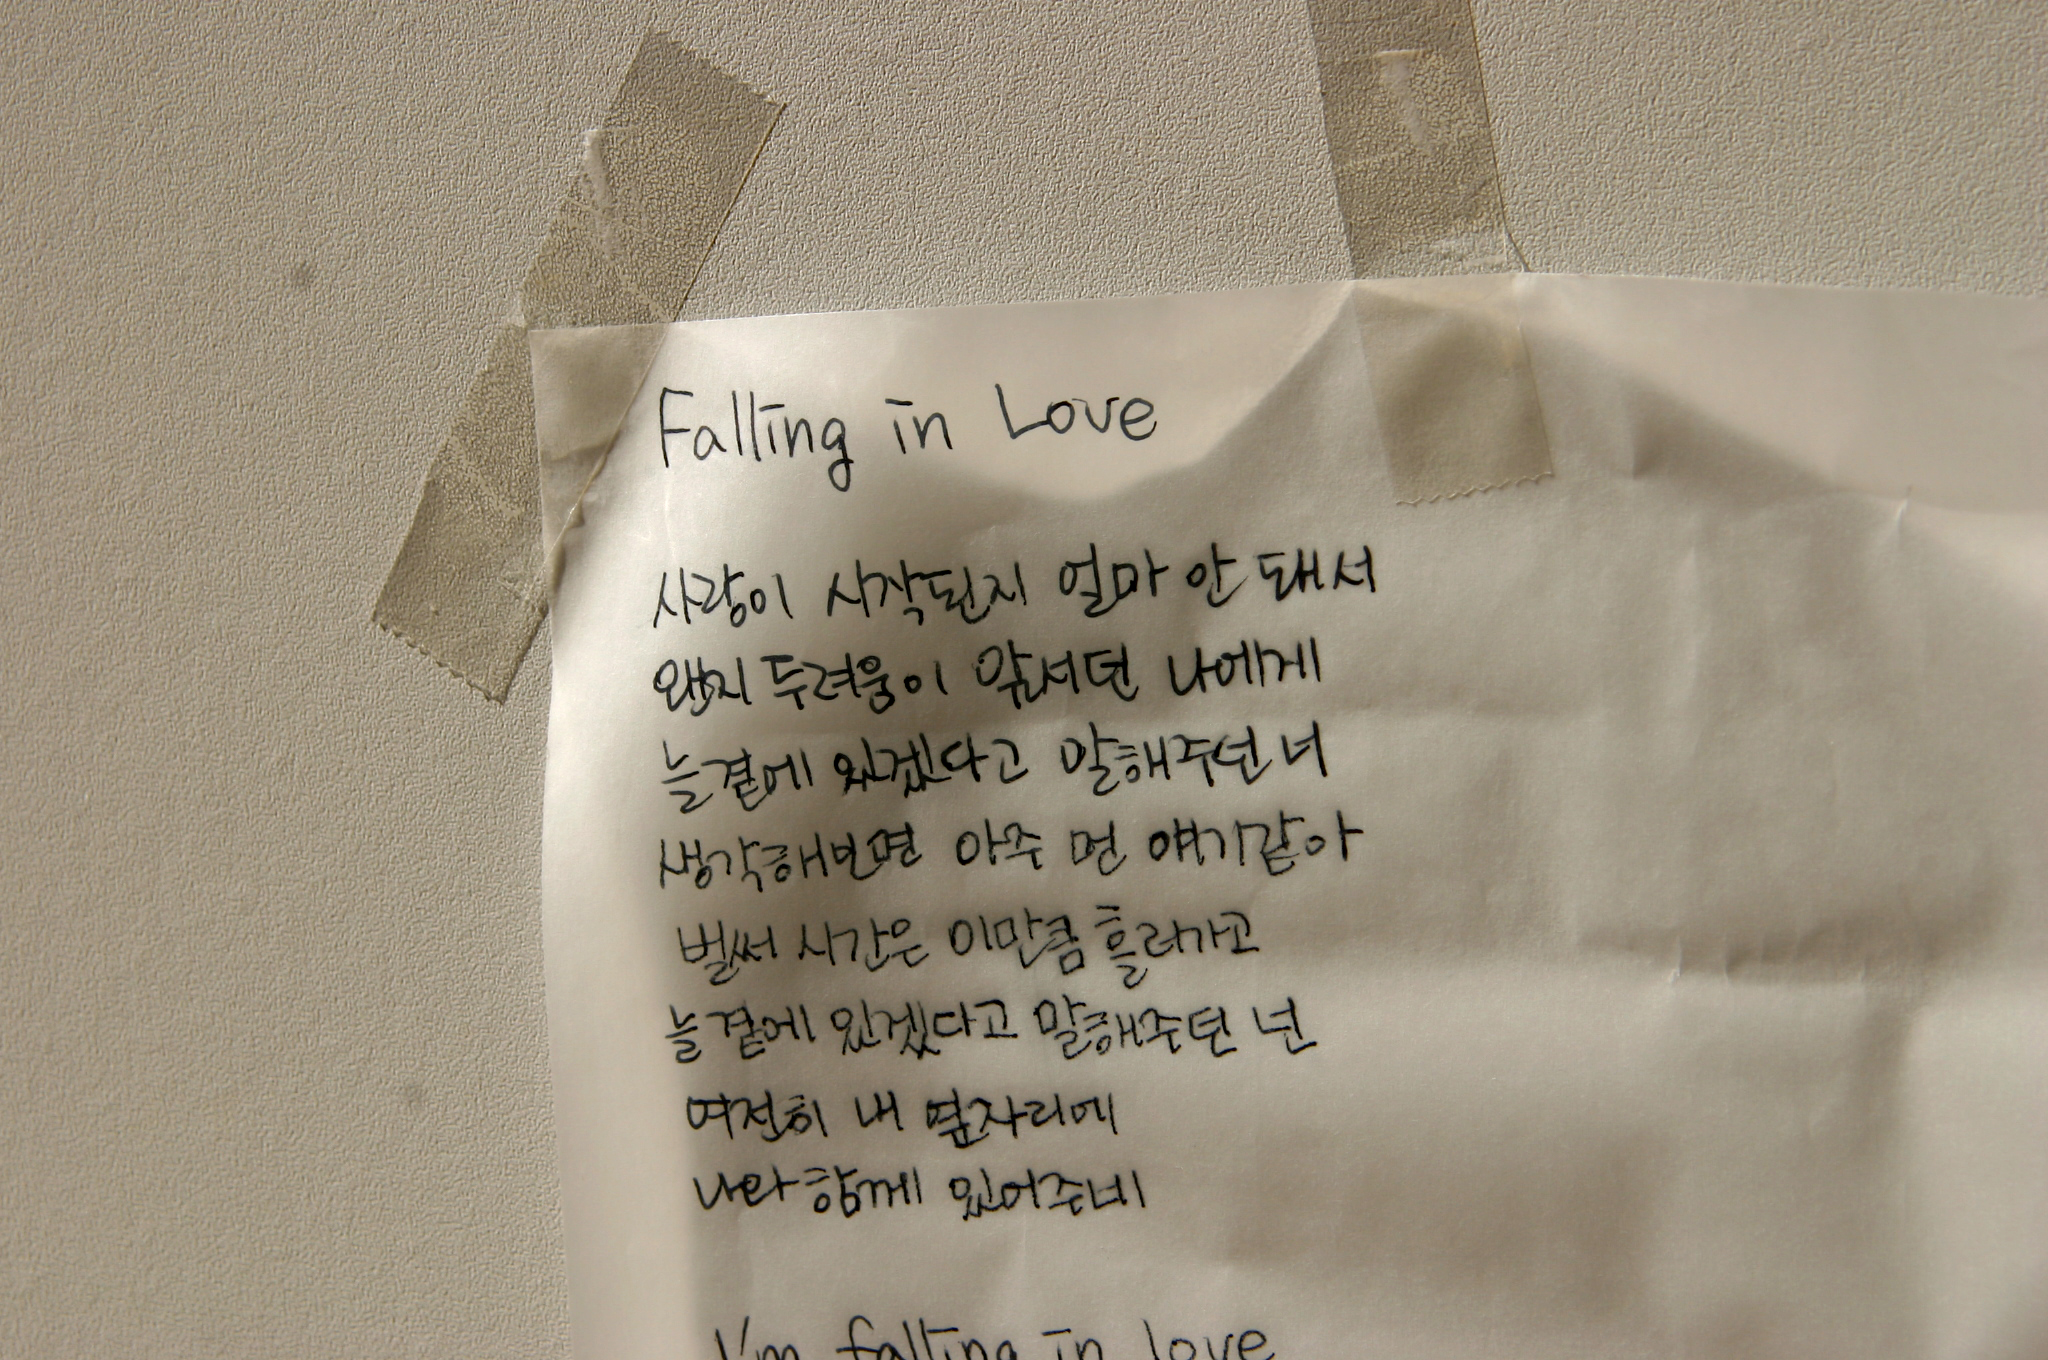 Falling in Love
사랑이 시작된지 얼마 안 돼서
왠지 두려움이 앞서던 나에게
늘 곁에 있겠다고 말해주던 너
생각해보면 아주 먼 얘기같아
벌써 시간은 이만큼 흘러가고
늘 곁에 있겠다고 말해주던 넌
여전히 내 옆자리에
나와 함께 있어주네
I'm falling in love